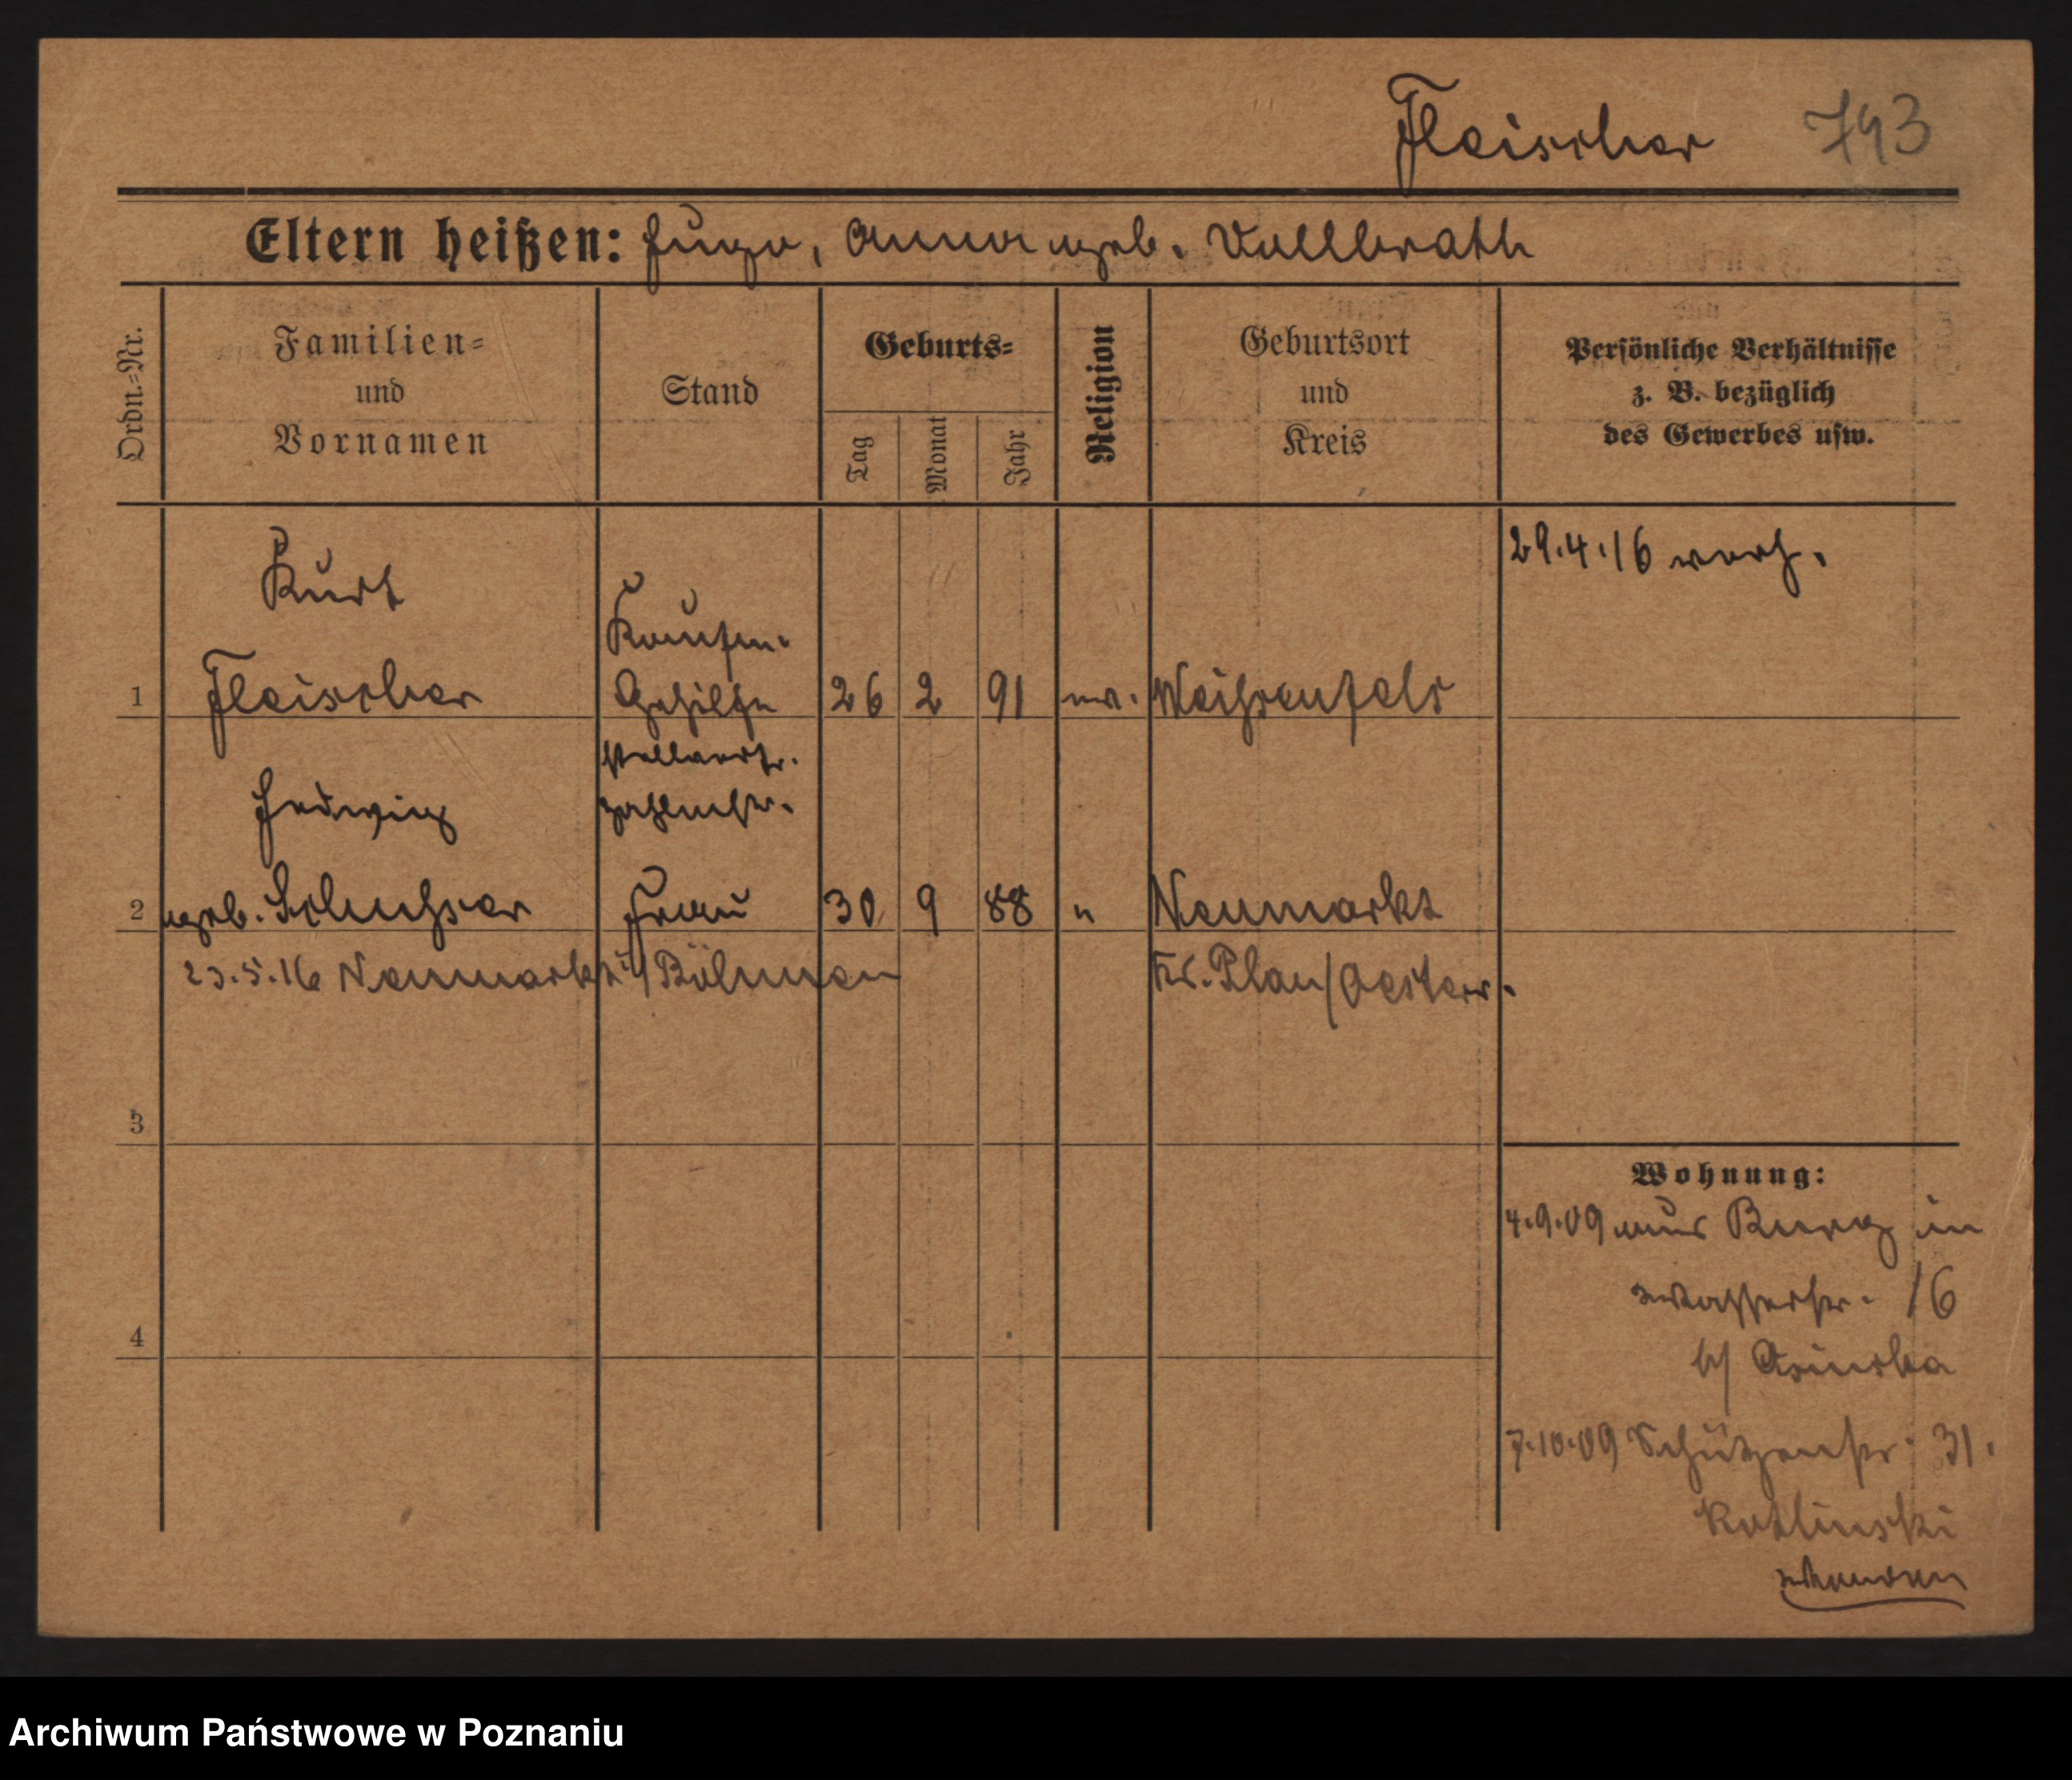 Fleischer 743
Eltern heißen: Hugo, Anna geb. Vollbrath
Ordn.=Nr.
Familien=
und
Vornamen
Stand
Geburts=
Tag
Monat
Jahr
Religion
Geburtsort
und
Kreis
Persönliche Verhältnisse
z. B. bezüglich
des Gewerbes usw.
29.4.16 verh.
Kurt
Kaufm.
1 Fleischer Gehilfe 26 2 91 ev. Weißenfels
stellvertr.
Zahlmstr.
Hedwig
2 geb. Frau 30 9 88 " Neumarkt
23.5.16 Neumarkt i/ Böhmen Kr. Plan/Oesterr.
3
Wohnung:
4.9.09 aus Burg in
Wasserstr. 16
b/
4
7.10.09 Schützenstr. 31.
Kotlinski